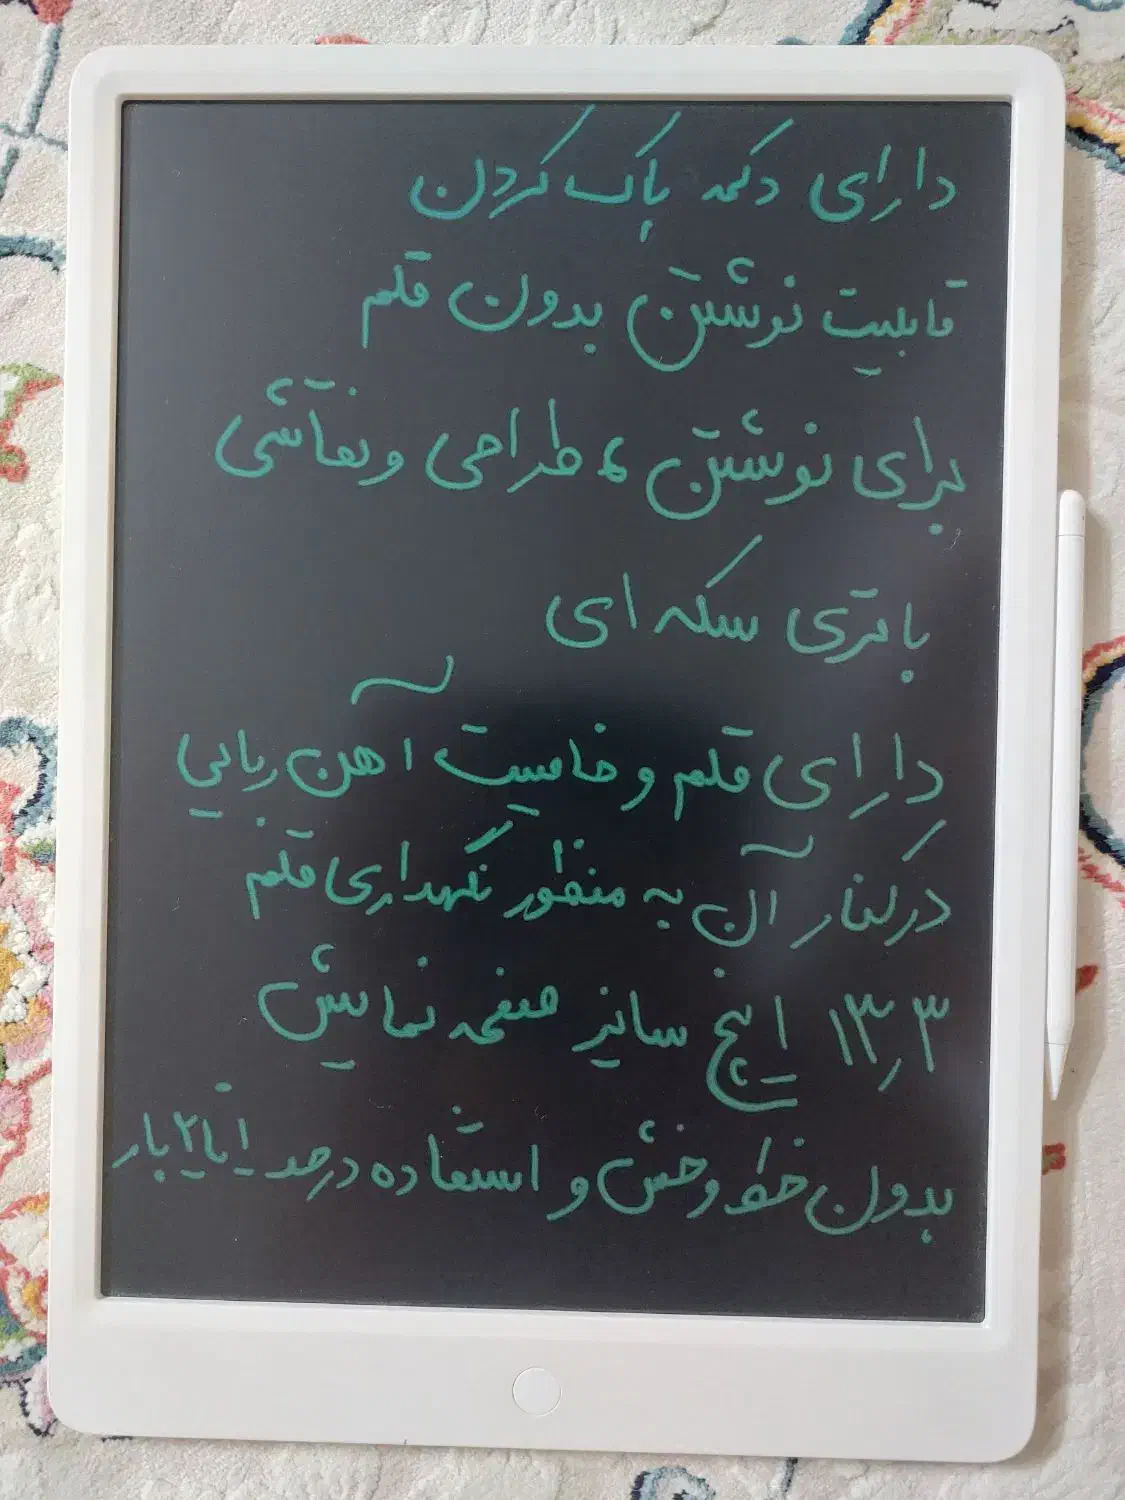 دارای دکمه پاک کردن
قابلیت نوشتن بدون قلم
برای نوشتن، طراحی و نقاشی
باتری سکه ای
دارای قلم و خاصیت آهن ربایی
در کنار آن به منظور نگهداری قلم
۱۳٫۳ اینچ سایز صفحه نمایش
بدون خط و خش و استفاده در حد ۱ تا ۲ بار